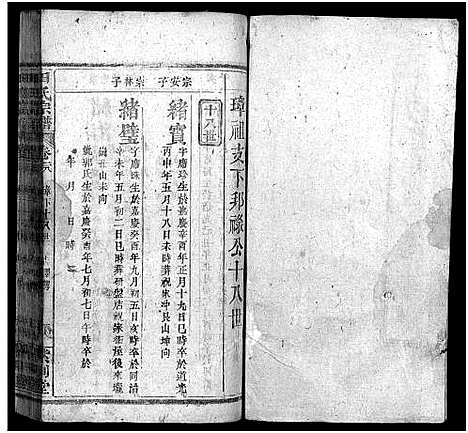 璋祖支下邦祿公十八世
十八世
宗安子
緒寶
字應珍生於嘉慶辛酉年正月十九日巳時卒於道光
丙申年五月十八日未時葬祝家冲艮山坤向
宗林子
緒璧
字應珠生於嘉慶癸酉年九月初五日亥時卒於同治
辛未年五月初二日巳時葬研盤店祝家莊後來壠
丑山未向
郭氏生於嘉慶癸酉年七月初七日午時卒於
年 月 日 時
氏宗譜